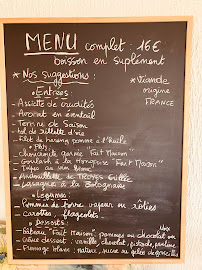 MENU complet : 16€
boisson en suplément
* Nos suggestions :
* Viande
origine
FRANCE
* Entrées :
- Assiette de crudités
- Avocat en éventail
- Terrine de Saison
- Filet de hareng pomme à l'huile
* Plats :
- Choucroute garnie "Fait Maison"
- Goulash à la Hongroise "Fait Maison"
- Andouillette de TROYES Grillée
- Lasagnes à la Bolognaise
* Légumes :
- Pommes de terre vapeur ou rôties
- Carottes, flageolets
* Desserts :
- Gâteau "Fait Maison" pommes ou chocolat
- Crème dessert : vanille, chocolat, pistache, praline
- Fromage blanc : nature, sucre ou gelée de groseilles